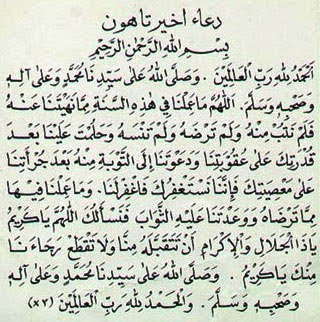 دعاء اخير تاهون
بِسْمِ اللهِ الرَّحْمٰنِ الرَّحِيْمِ
اَلْحَمْدُ لِلّٰهِ رَبِّ الْعَالَمِيْنَ . وَصَلَّى اللهُ عَلٰى سَيِّدِنَا مُحَمَّدٍ وَعَلٰى اٰلِهِ
وَصَحْبِهِ وَسَلَّمَ . اَللّٰهُمَّ مَا عَمِلْنَا فِي هٰذِهِ السَّنَةِ مِمَّا نَهَيْتَنَا عَنْهُ
فَلَمْ نَتُبْ مِنْهُ وَلَمْ تَرْضَهُ وَلَمْ تَنْسَهُ وَحَلُمْتَ عَلَيْنَا بَعْدَ
قُدْرَتِكَ عَلٰى عُقُوْبَتِنَا وَدَعَوْتَنَا اِلَى التَّوْبَةِ مِنْهُ بَعْدَ جُرْأَتِنَا
عَلٰى مَعْصِيَتِكَ فَاِنَّنَا نَسْتَغْفِرُكَ فَاغْفِرْلَنَا . وَمَا عَمِلْنَا فِيْهَا
مِمَّا تَرْضَاهُ وَوَعَدْتَنَا عَلَيْهِ الثَّوَابَ فَنَسْأَلُكَ اللّٰهُمَّ يَا كَرِيْمُ
يَا ذَا الْجَلَالِ وَالْاِكْرَامِ أَنْ تَتَقَبَّلَهُ مِنَّا وَلَا تَقْطَعْ رَجَاءَنَا
مِنْكَ يَا كَرِيْمُ . وَصَلَّى اللهُ عَلٰى سَيِّدِنَا مُحَمَّدٍ وَعَلٰى اٰلِهِ
وَصَحْبِهِ وَسَلَّمَ . وَالْحَمْدُ لِلّٰهِ رَبِّ الْعَالَمِيْنَ (٣x)